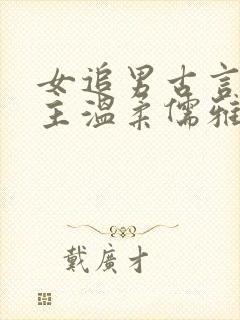 女追男古言
主溫柔儒雅
戴廣才